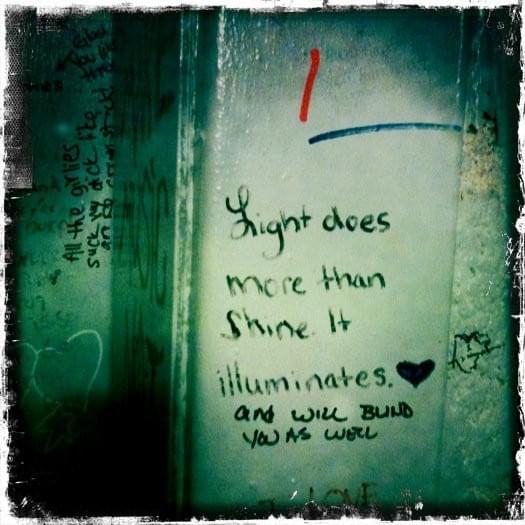 Light does
more than
Shine. It
illuminates.
and WILL BLIND
YOU AS WELL
LOVE
All the girlies
suck my dick like